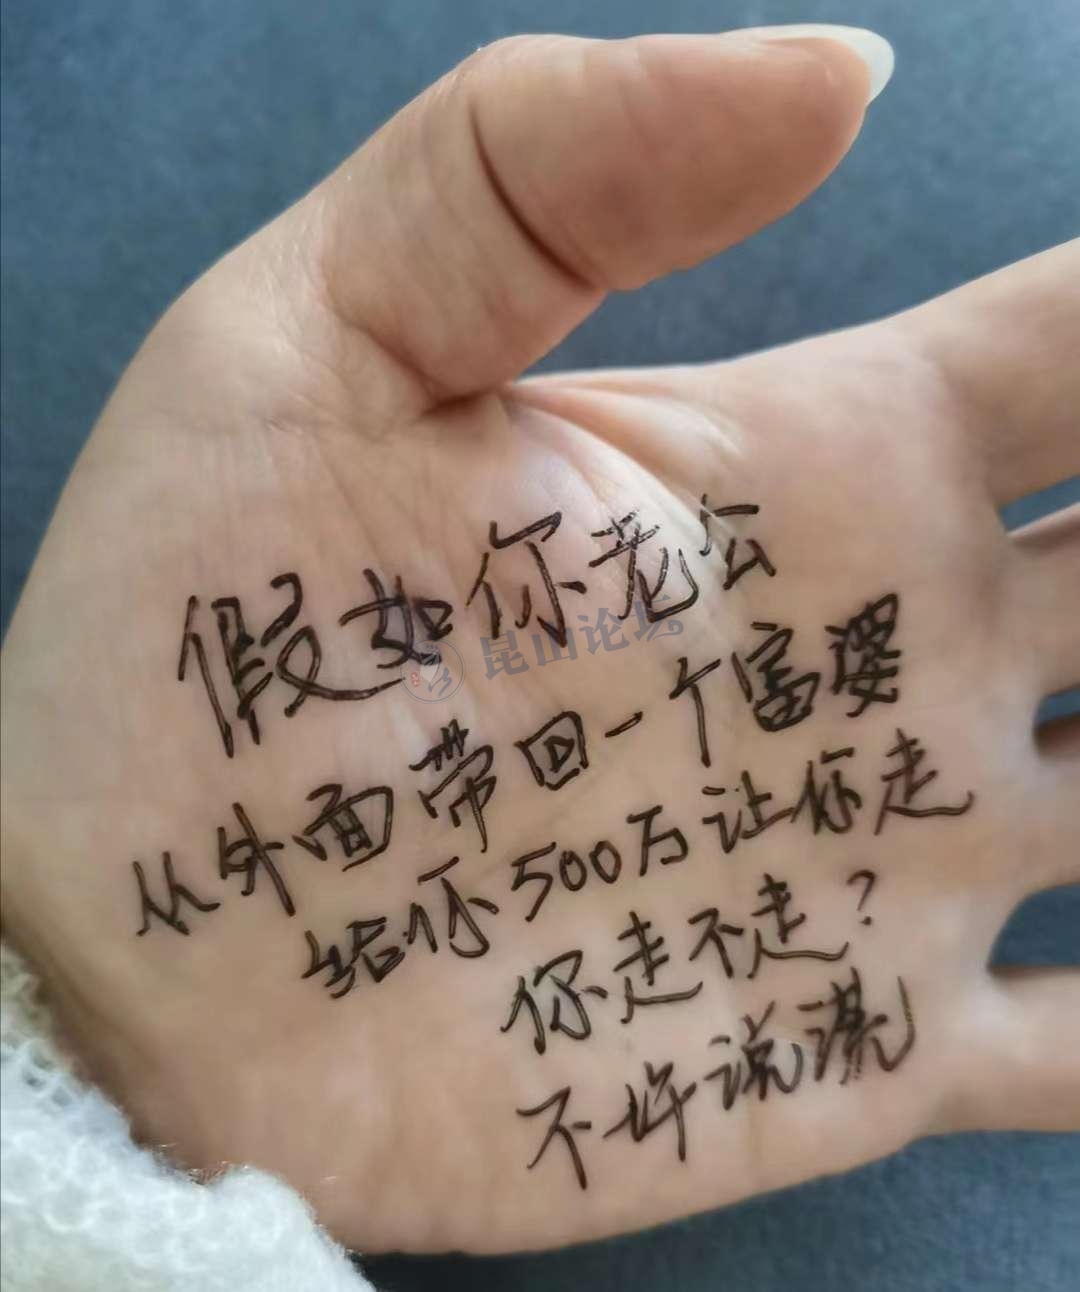 假如你老公
昆山论坛
从外面带回一个富婆
给你500万让你走
你走不走?
不许说谎